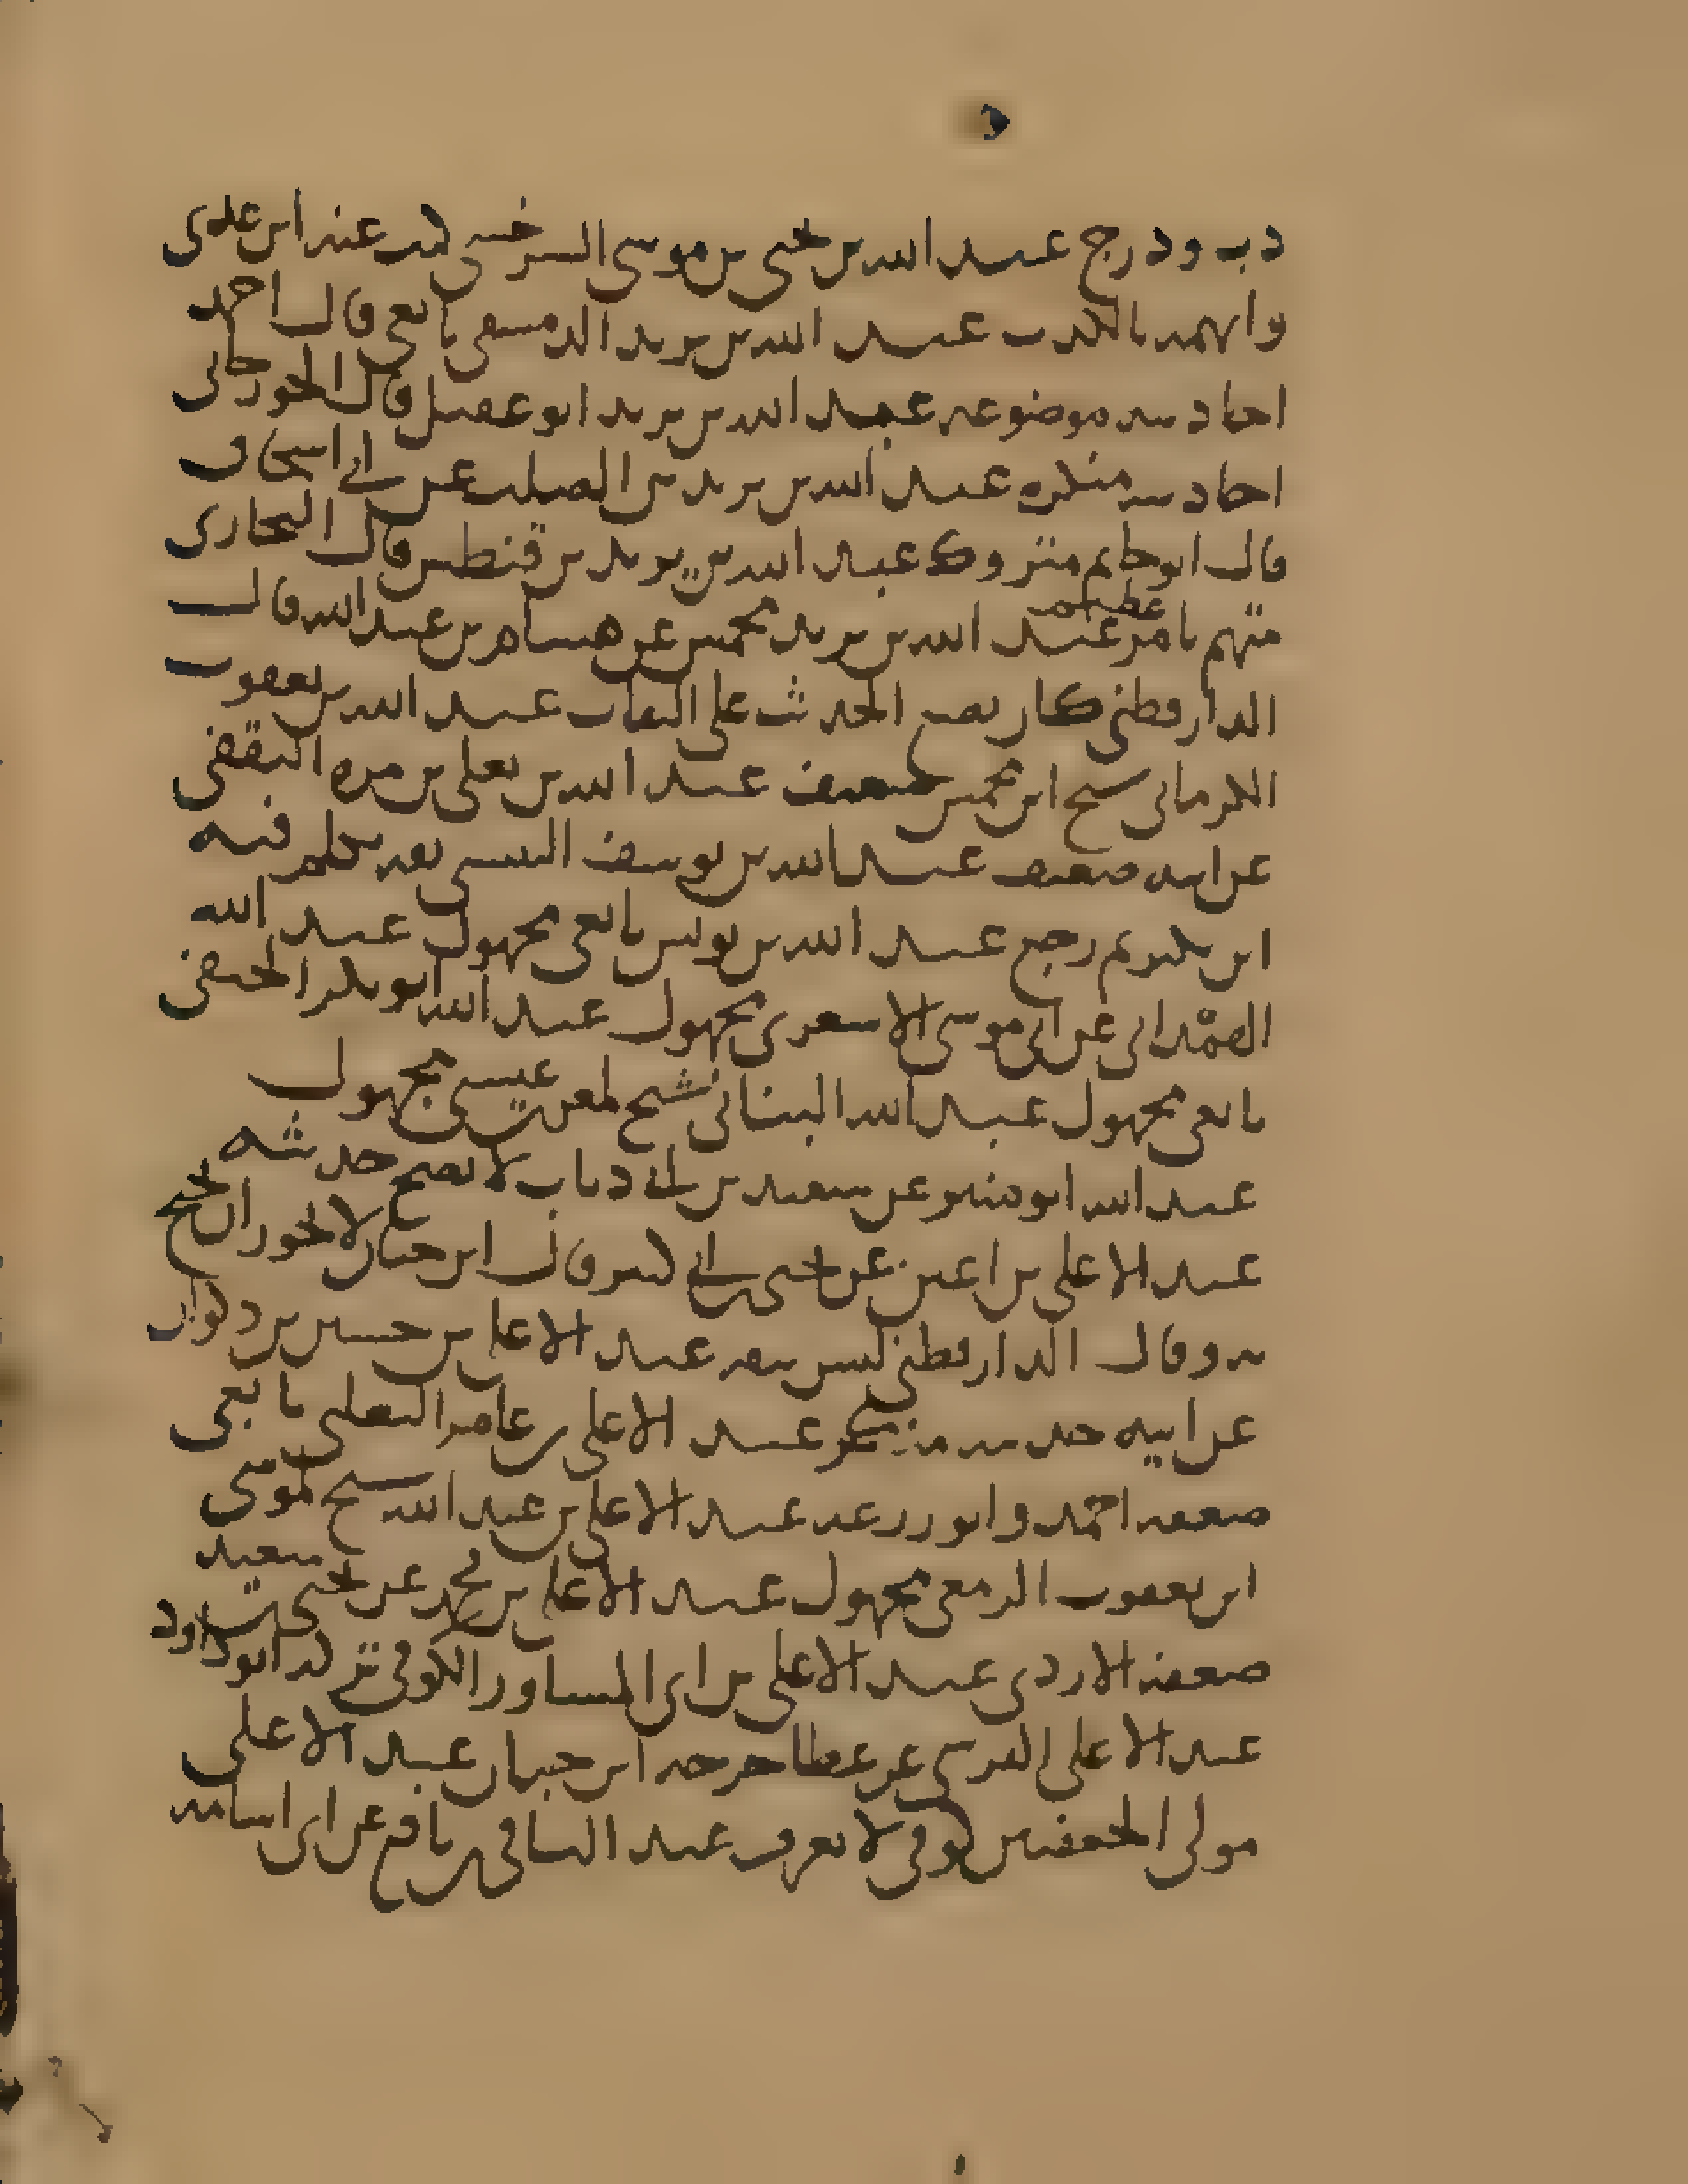 دب ود رج عبد الله بن يحيى بن موسى السرخسي كتب عنه ابن عدي
واتهمه بالكذب عبد الله بن يزيد الدمشقي تابعي قال احمد
احاديثه موضوعه عبد الله بن يزيد ابو عقيل قال الجوزجاني
احاديثه منكره عبد الله بن يزيد بن الصلت عن ابي اسحاق
قال ابو حاتم متروك عبد الله بن يزيد بن قنطس قال البخاري
متهم بامر عظيم عبد الله بن يزيد محمس عن هشام بن عبد الله قال
الدارقطني كان يضع الحديث على الثقات عبد الله بن يعقوب
الكرماني شيخ ابن محمس ضعيف عبد الله بن يعلى بن مره الثقفي
عن ابيه ضعيف عبد الله بن يوسف التنيسي ثقه تكلم فيه
ابن بكير ثم رجع عبد الله بن يونس تابعي مجهول عبد الله
الهمداني عن ابي موسى الاشعري مجهول عبد الله ابو بكر الحنفي
تابعي مجهول عبد الله البناني شيخ لمعن بن عيسى مجهول
عبد الله ابو منير عن سعيد بن ابي ذباب لا يصح حديثه
عبد الاعلى بن اعين عن يحيى بن ابي كثير قال ابن حبان لا يجوز ان يحتج
به وقال الدارقطني ليس بثقه عبد الاعلى بن حسين بن ذكوان
عن ابيه حديثه منكر عبد الاعلى بن عامر الثعلبي تابعي
ضعفه احمد وابو زرعه عبد الاعلى بن عبد الله شيخ لموسى
ابن يعقوب الزمعي مجهول عبد الاعلى بن محمد عن يحيى بن سعيد
ضعفه الازدي عبد الاعلى بن ابي المساور الكوفي تركه ابو داود
عبد الاعلى القرشي عن عطا جرحه ابن حبان عبد الاعلى
مولى الجعفيين كوفي لا يعرف عبد الباقي بن نافع عن ابي اسامه